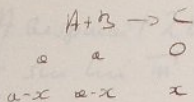 A + B → C
a a 0
a-x a-x x